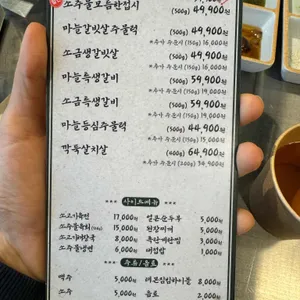 소주물모듬한접시
(500g) 49,900원
마늘갈빗살주물럭
(500g) 49,900원
*추가 주문시 (150g) 16,000원
소금생갈빗살
(500g) 49,900원
*추가 주문시 (150g) 16,000원
마늘특생갈비
(500g) 59,900원
*추가 주문시 (150g) 19,000원
소금특생갈비
(500g) 59,900원
*추가 주문시 (150g) 19,000원
마늘등심주물럭
(500g) 44,900원
*추가 주문시 (150g) 15,000원
깍둑살치살
(400g) 64,900원
사이드메뉴
소고기육면 17,000원
얼큰순두부 5,000원
된장찌개 5,000원
폭탄계란찜 3,000원
소주물냉면 6,000원
대접밥 1,000원
주류/음료
맥주 5,000원
8,000원
소주 5,000원
음료 2,000원